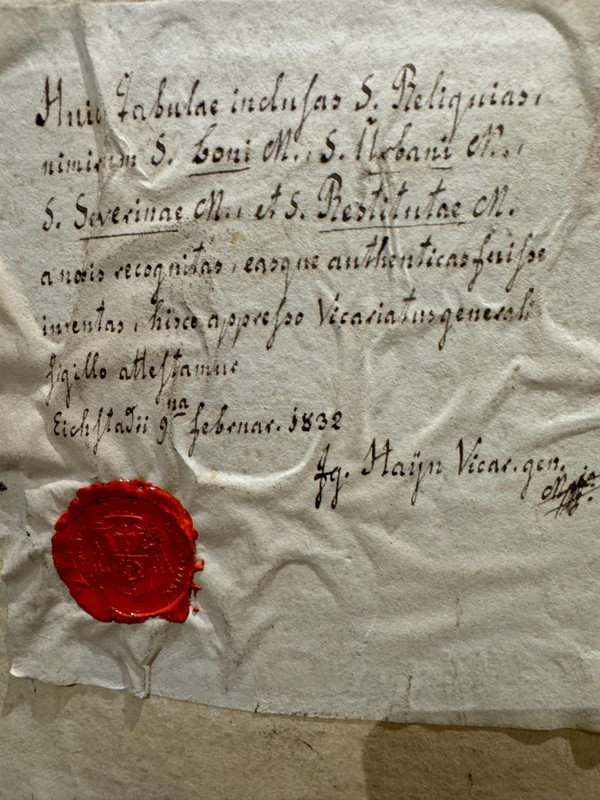 Huic Tabulae inclusas S. Reliquias,
nimirum S. Boni M., S. Urbani M.,
S. Severinae M., et S. Restitutae M.
a nobis recognitas, easque authenticas fuisse
inventas, hisce appresso Vicariatus generalis
sigillo attestamur
Eichstadii 9na februar. 1832
Jg. Haÿn Vicar. gen.